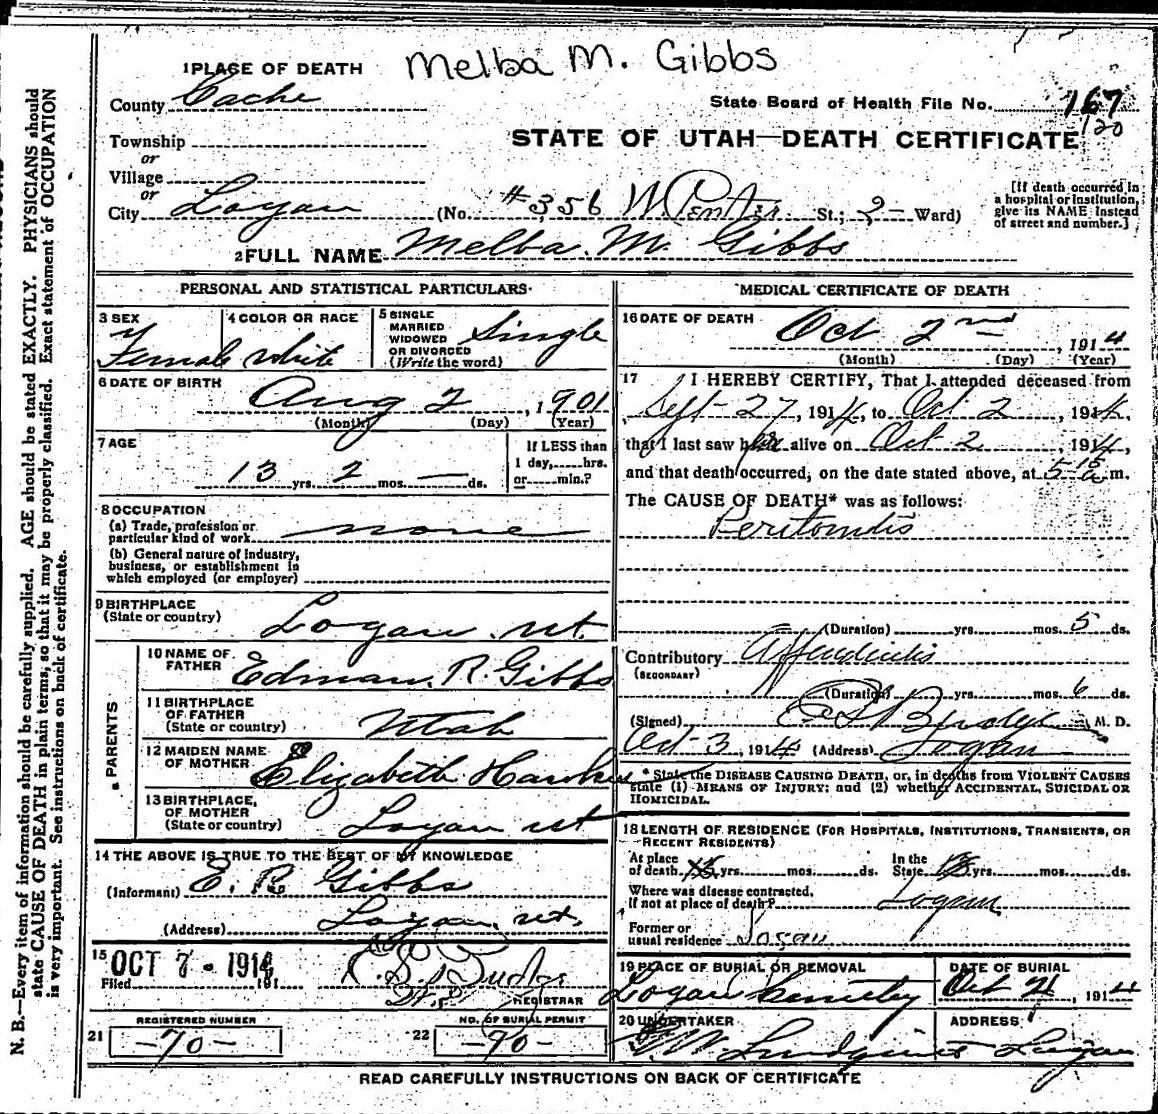 Melba M. Gibbs
1 PLACE OF DEATH
County Cache
State Board of Health File No. 167
120
Township
or
Village
or
City Logan
STATE OF UTAH—DEATH CERTIFICATE
(No. #356 W Center St.; 2 — Ward)
[If death occurred in
a hospital or institution,
give its NAME instead
of street and number.]
2 FULL NAME Melba. M. Gibbs
PERSONAL AND STATISTICAL PARTICULARS
3 SEX
Female
4 COLOR OR RACE
White
5 SINGLE
MARRIED
WIDOWED
OR DIVORCED
(Write the word)
Single
6 DATE OF BIRTH
Aug 2, 1901
(Month) (Day) (Year)
7 AGE
13 yrs. 2 mos. — ds.
If LESS than
1 day,......hrs.
or......min.?
8 OCCUPATION
(a) Trade, profession or
particular kind of work none
(b) General nature of industry,
business, or establishment in
which employed (or employer)
9 BIRTHPLACE
(State or country)
Logan. ut.
PARENTS
10 NAME OF
FATHER
Edman. R. Gibbs
11 BIRTHPLACE
OF FATHER
(State or country)
Utah
12 MAIDEN NAME
OF MOTHER
Elizabeth
13 BIRTHPLACE,
OF MOTHER
(State or country)
Logan ut
14 THE ABOVE IS TRUE TO THE BEST OF MY KNOWLEDGE
(Informant) E. R. Gibbs
(Address) Logan, ut,
15
Filed OCT 7 - 1914 191
REGISTRAR
REGISTERED NUMBER
21 —70—
NO. OF BURIAL PERMIT
22 —90—
MEDICAL CERTIFICATE OF DEATH
16 DATE OF DEATH
Oct 2nd, 1914
(Month) (Day) (Year)
17 I HEREBY CERTIFY, That I attended deceased from
Sept-27, 1914, to Oct 2, 1914,
that I last saw her alive on Oct-2 1914,
and that death occurred, on the date stated above, at 5-15 a m.
The CAUSE OF DEATH* was as follows:
Peritonitis
(Duration) yrs. mos. 5 ds.
Contributory Appendicitis
(SECONDARY)
(Duration) yrs. mos. 6 ds.
(Signed) M. D.
Oct-3, 1914 (Address) Logan
* State the DISEASE CAUSING DEATH, or, in deaths from VIOLENT CAUSES
state (1) MEANS OF INJURY; and (2) whether ACCIDENTAL, SUICIDAL OR
HOMICIDAL.
18 LENGTH OF RESIDENCE (FOR HOSPITALS, INSTITUTIONS, TRANSIENTS, OR
RECENT RESIDENTS)
At place
of death yrs. mos. ds.
In the
State yrs. mos. ds.
Where was disease contracted.
if not at place of death? Logan
Former or
usual residence Logan
19 PLACE OF BURIAL OR REMOVAL
Logan Cemetery
DATE OF BURIAL
Oct 4, 1914
20 UNDERTAKER
ADDRESS
Logan
READ CAREFULLY INSTRUCTIONS ON BACK OF CERTIFICATE
N. B.—Every item of information should be carefully supplied. AGE should be stated EXACTLY. PHYSICIANS should
state CAUSE OF DEATH in plain terms, so that it may be properly classified. Exact statement of OCCUPATION
is very important. See instructions on back of certificate.